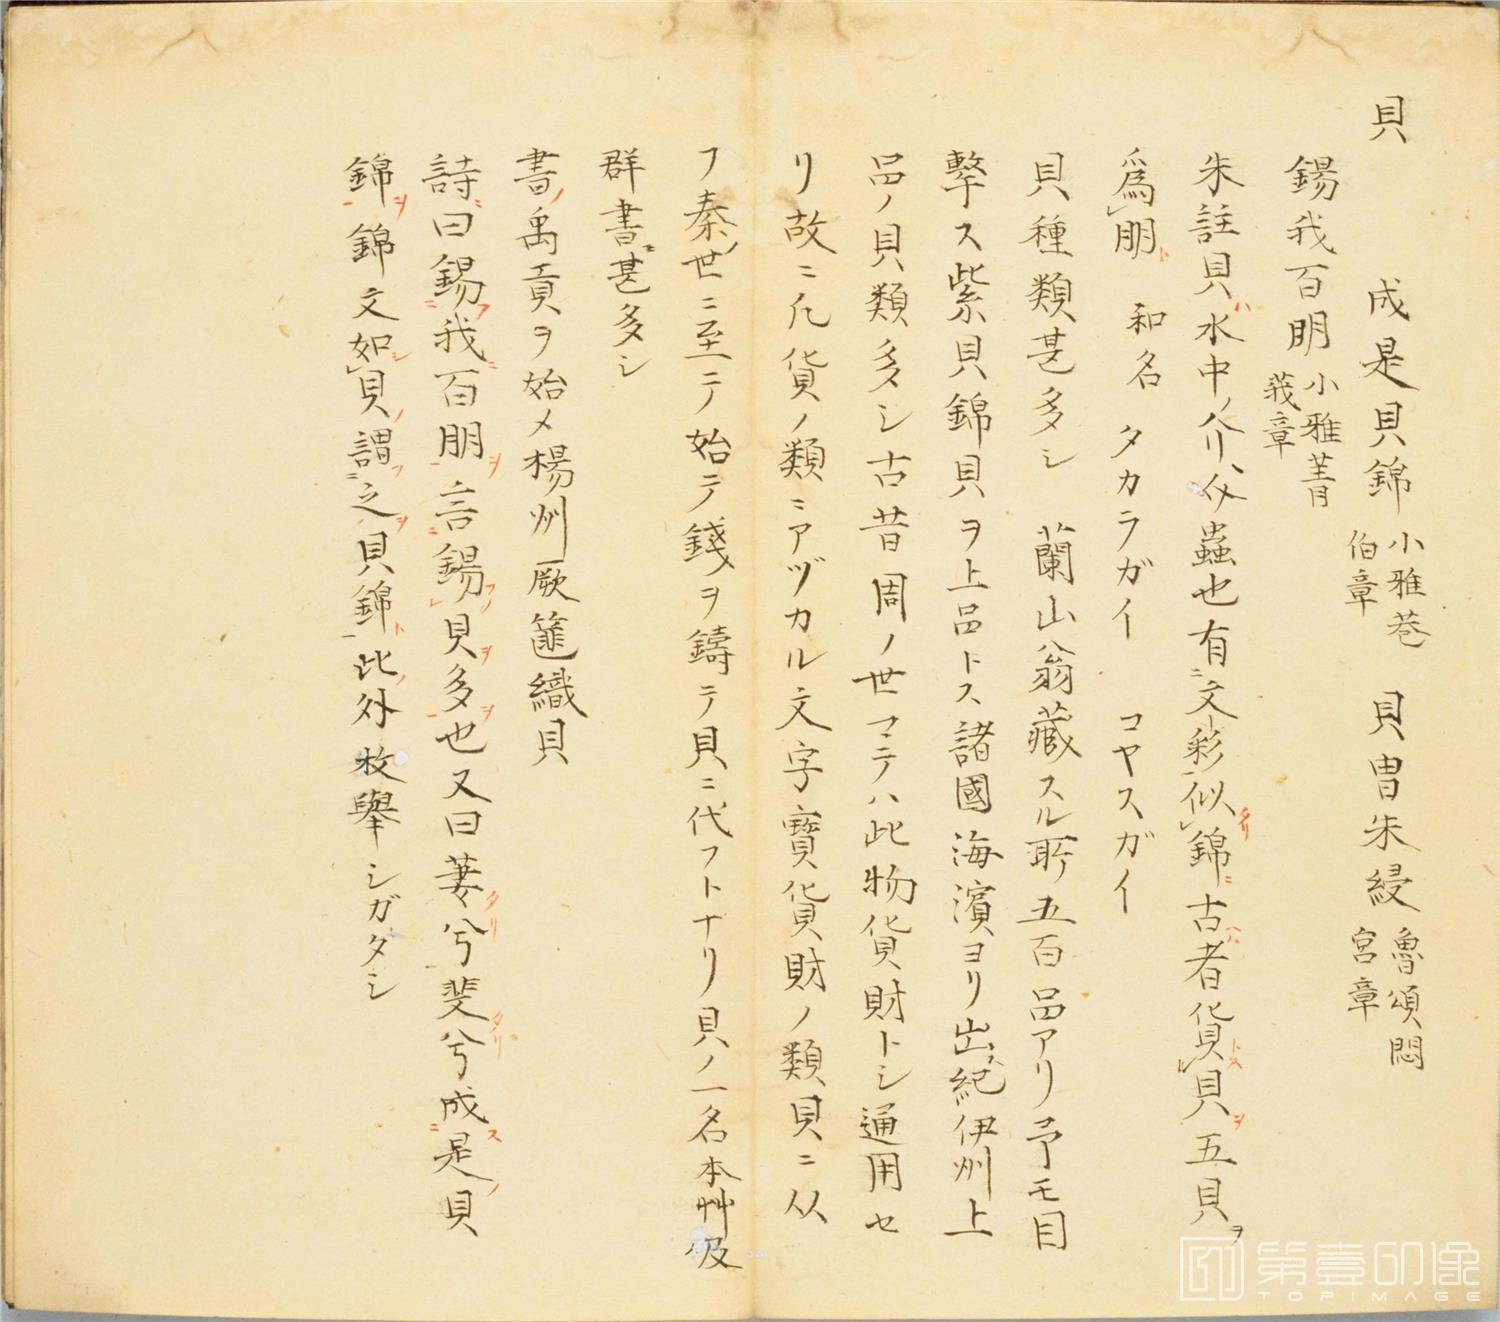 貝　成是貝錦　小雅巷伯章　貝胄朱綅　魯頌閟宮章
錫我百朋　小雅菁莪章
朱註貝ハ水中ノ介蟲也有文彩似タリ錦ニ古者ハ貨トス貝ヲ五貝ヲ
為朋ト　和名　タカラガイ　コヤスガイ
貝種類甚多シ　蘭山翁藏スル所五百品アリ予モ目
擊ス紫貝錦貝ヲ上品トス諸國海濱ヨリ出紀伊州上
品ノ貝類多シ古昔周ノ世マテハ此物貨財トシ通用セ
リ故ニ凡貨ノ類ニアヅカル文字寶貨財ノ類貝ニ从
フ秦ノ世ニ至テ始テ錢ヲ鑄テ貝ニ代フトナリ貝ノ一名本艸及
群書ニ甚多シ
書ノ禹貢ヲ始メ楊州厥篚織貝
詩ニ曰錫フ我ニ百朋ヲ言錫フノ貝ヲ多ヲ也又曰萋タリ兮斐タリ兮成ス是ノ貝
錦ヲ錦文如シ貝ノ謂フ之ヲ貝錦ト此ノ外枚擧シガタシ
第壹印像
TOPIMAGE